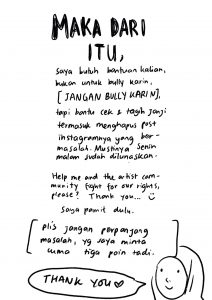 MAKA DARI
ITU,
saya butuh bantuan kalian,
bukan untuk bully karin,
[JANGAN BULLY KARIN],
tapi bantu cek & tagih janji
termasuk menghapus post
instagramnya yang ber-
masalah. Mustinya Senin
malam sudah dilunaskan.
Help me and the artist com-
munity fight for our rights,
please? Thank you...
Saya pamit dulu.
[plis jangan perpanjang
masalah, yg saya minta
cuma tiga poin tadi.]
THANK YOU ♡